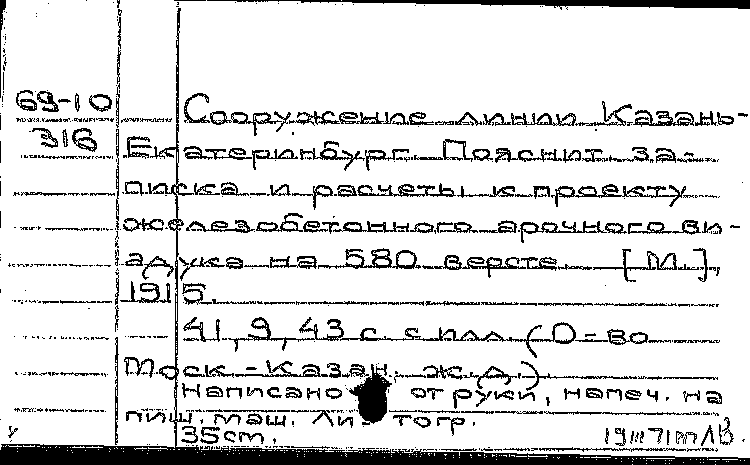 69-10
316
Сооружение линии Казань-
Екатеринбург. Пояснит. за-
писка и расчеты к проекту
железобетонного арочного ви-
адука на 580 версте. [М.],
1915.
41, 9, 43 с. с илл. (О-во
Моск.-Казан. ж.д.).
Написано от руки, напеч. на
пиш. маш. Ли- тогр.
35 см.